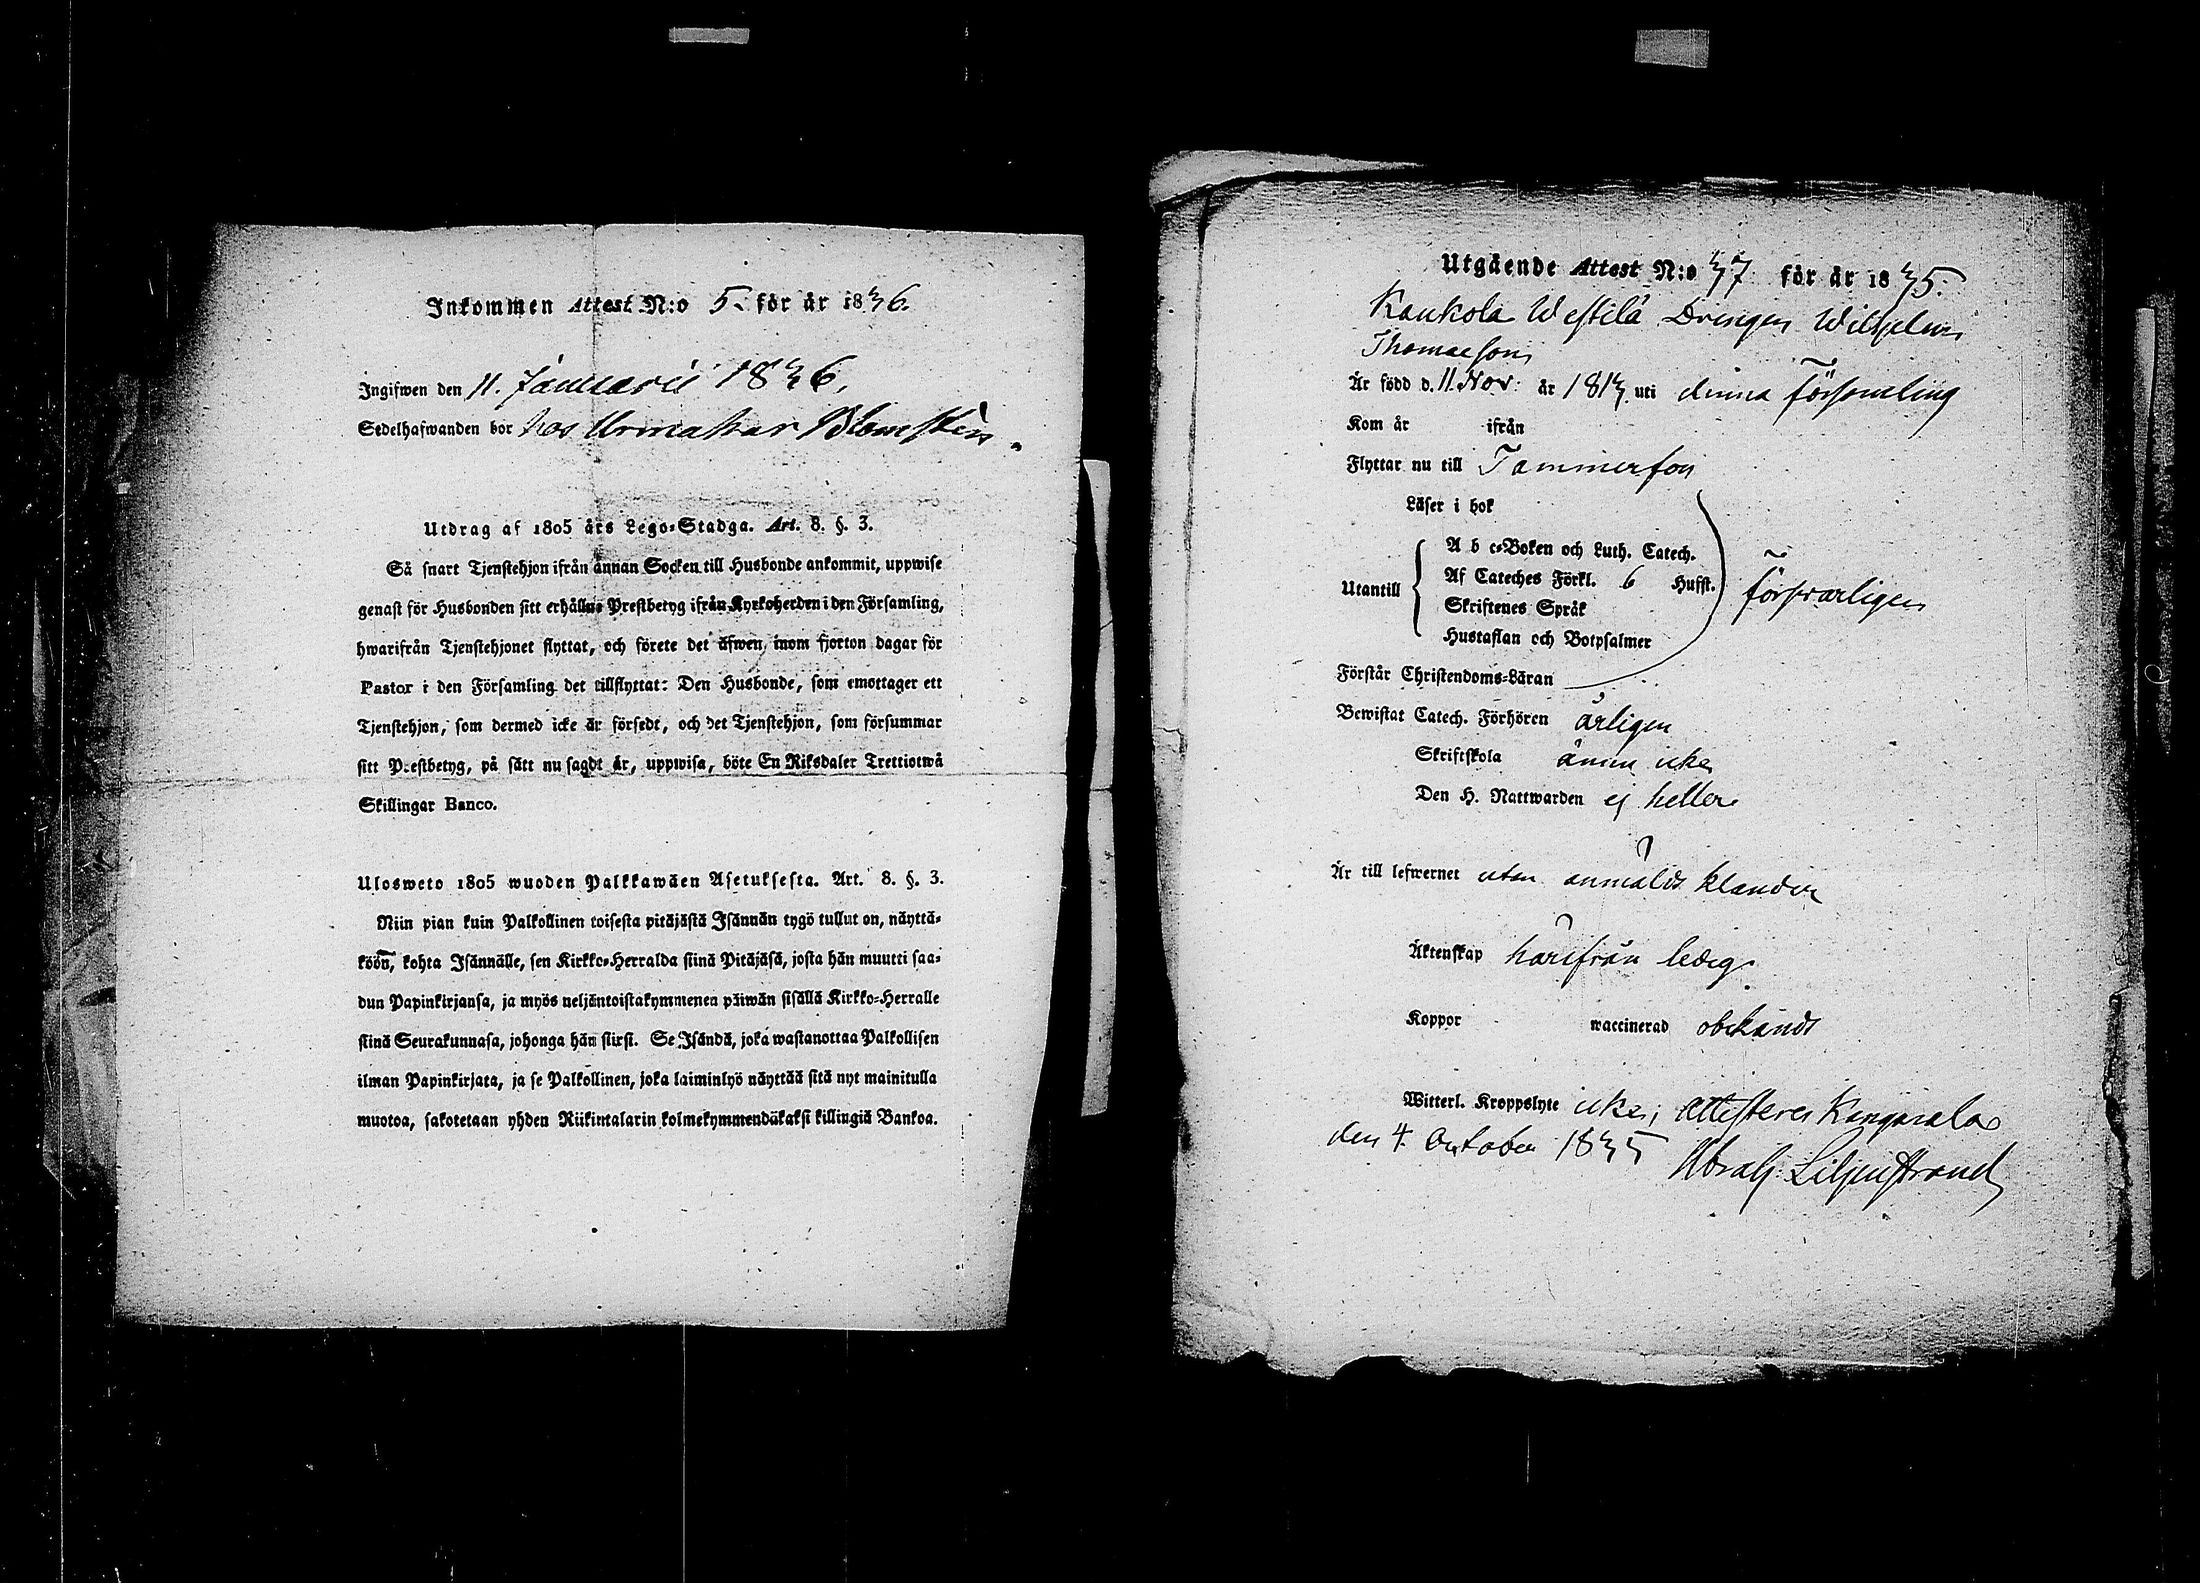 Inkommen Attest N:o 5. för år 1836.
Ingifwen den 11. Januarii 1836.
Sedelhafwanden bor hos Urmakar Blomstèn.
Utdrag af 1805 års Lego-Stadga. Art. 8. §. 3.
Så snart Tjenstehjon ifrån annan Socken till Husbonde ankommit, uppwise
genast för Husbonden sitt erhållne Prestbetyg ifrån Kyrkoherden i den Församling,
hwarifrån Tjenstehjonet flyttat, och förete det äfwen inom fjorton dagar för
Pastor i den Församling det tillflyttat: Den Husbonde, som emottager ett
Tjenstehjon, som dermed icke är försedt, och det Tjenstehjon, som försummar
sitt Prestbetyg, på sätt nu sagdt är, uppwisa, böte En Riksdaler Trettiotwå
Skillingar Banco.
Ulosweto 1805 wuoden Palkkawäen Asetuksesta. Art. 8. §. 3.
Niin pian kuin Palkollinen toisesta pitäjästä Isännän tygö tullut on, näyttä-
köön, kohta Isännälle, sen Kirkko-Herralda siinä Pitäjäsä, josta hän muutti saa-
dun Papinkirjansa, ja myös neljäntoistakymmenen päiwän sisällä Kirkko-Herralle
siinä Seurakunnasa, johonga hän siirsi. Se Isändä, joka wastanottaa Palkollisen
ilman Papinkirjata, ja se Palkollinen, joka laiminlyö näyttää sitä nyt mainitulla
muotoa, sakotetaan yhden Riikintalarin kolmekymmendäkaksi killingiä Bankoa.
Utgående Attest N:o 37 för år 1835.
Kaukola Westilä Drengen Wilhelm
Thomaeson
Är född d. 11 Nov: år 1813 uti denna Församling
Kom år ifrån
Flyttar nu till Tammerfors
Läser i bok
A b c-Boken och Luth. Catech.
Af Cateches Förkl. 6 Hufst.
Utantill försvarligen
Skriftenes Språk
Hustaflan och Botpsalmer
Förstår Christendoms-Läran
Bewistat Catech. Förhören årligen
Skriftskola ännu icke
Den H. Nattwarden ej heller
Är till lefwernet utan anmäldt klander
Äktenskap härifrån ledig.
Koppor waccinerad obekandt
Witterl. Kroppslyte icke; attesterar Kangasala
den 4. October 1835 Abrah. Liljenstrand